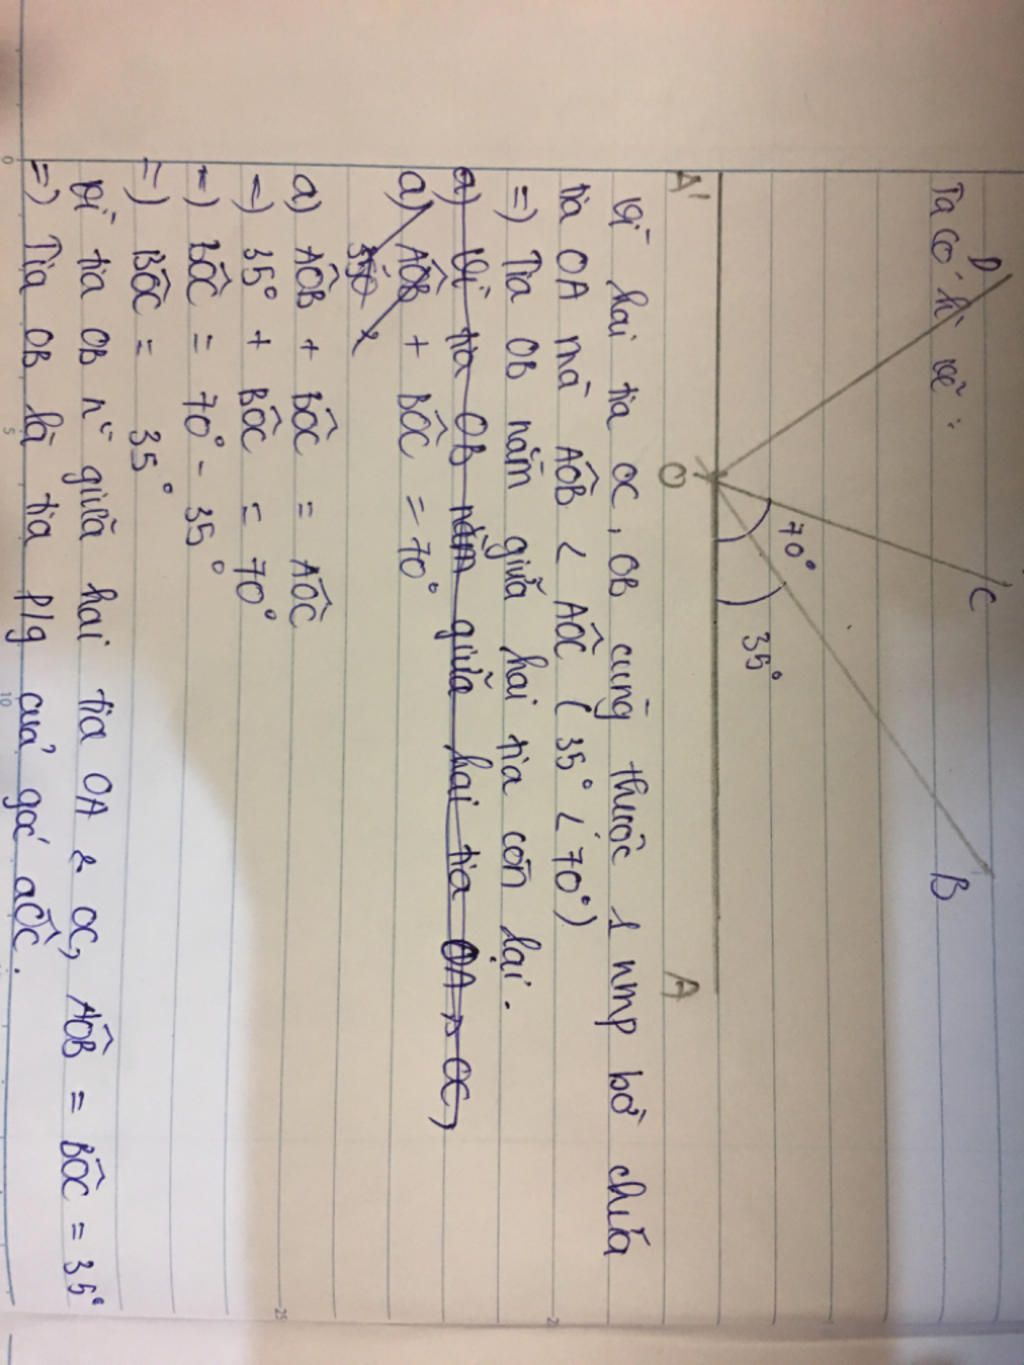 Ta có h` vẽ :
D
C
B
70°
35°
A'
O
A
Vì hai tia OC, OB cùng thuộc 1 nmp bờ chứa
tia OA mà AÔB < AÔC ( 35° < 70° )
=) Tia OB nằm giữa hai tia còn lại.
a) Vì tia OB nằm giữa hai tia OA, OC,
a) AÔB + BÔC = 70°
350
a) AÔB + BÔC = AÔC
=) 35° + BÔC = 70°
=) BÔC = 70° - 35°
=) BÔC = 35°
Vì tia OB n~ giữa hai tia OA & OC, AÔB = BÔC = 35°
=) Tia OB là tia p/g của góc aÔC.
0
5
10
25